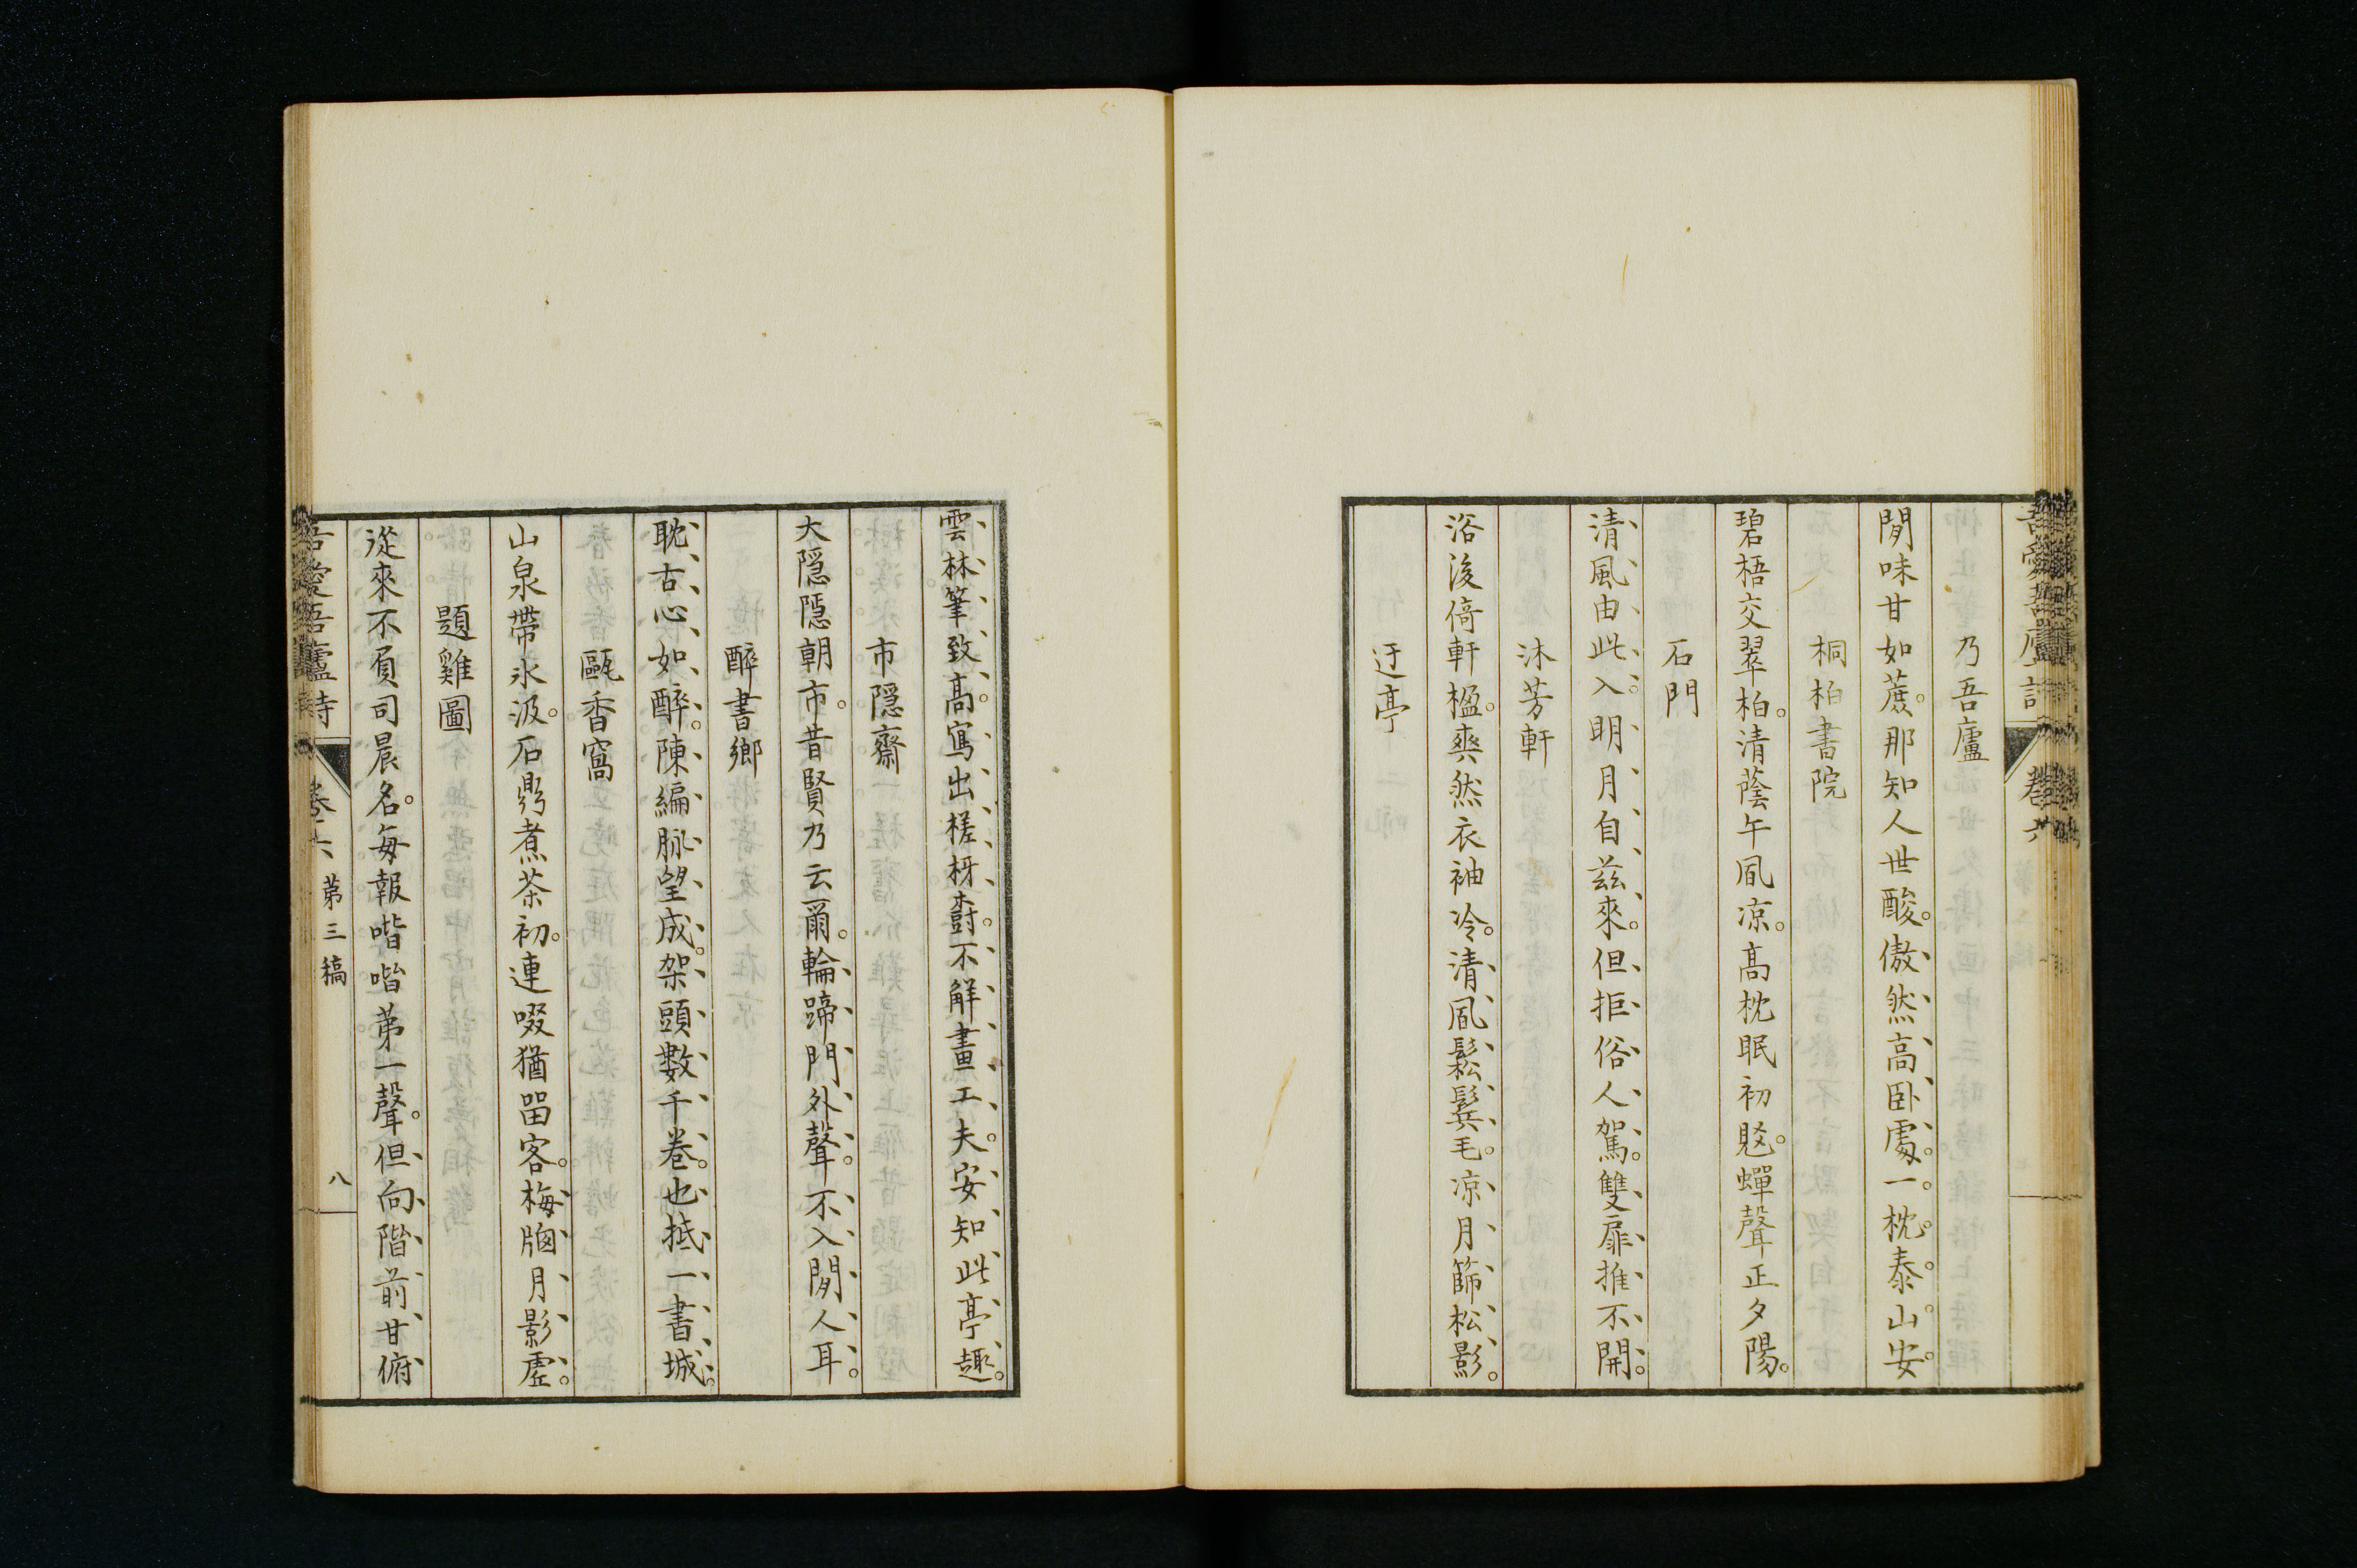 乃吾廬
閒味甘如蔗。那知人世酸。傲然高臥處。一枕泰山安
桐柏書院
碧梧交翠柏。清蔭午風凉。高枕眠初覺。蟬聲正夕陽。
石門
清風由此入。明月自茲來。但拒俗人駕。雙扉推不開。
沐芳軒
浴後倚軒楹。爽然衣袖冷。清風鬆鬢毛。凉月篩松影。
迂亭
雲林筆致高。寫出槎枒樹。不解畫工夫。安知此亭趣。
市隱齋
大隱隱朝市。昔賢乃云爾。輪蹄門外聲。不入閒人耳。
醉書鄉
耽古心如醉。陳編脈望成。架頭數千卷。也抵一書城。
甌香窩
山泉帶氷汲。石鼎煮茶初。連啜猶留客。梅牕月影虛。
題雞圖
從來不負司晨名。每報喈喈第一聲。但向階前甘俯
吾愛吾廬詩 卷六 第三稿 八